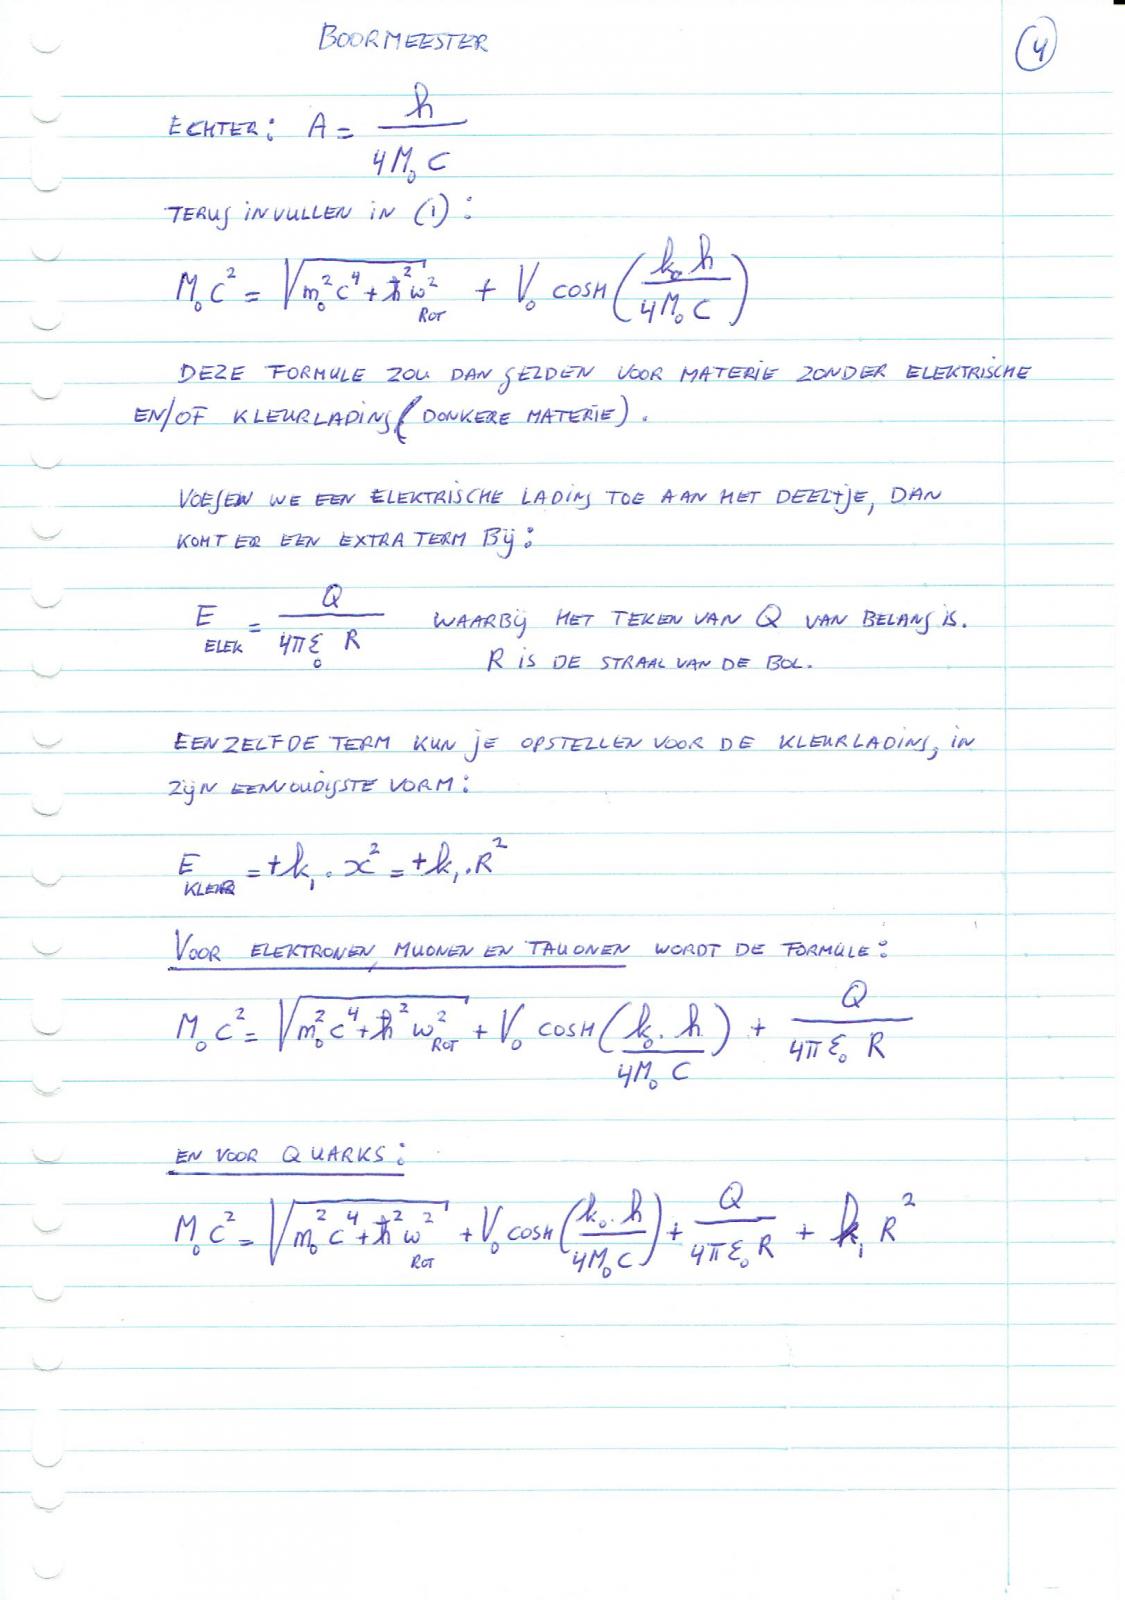 BOORMEESTER
4
ECHTER: A = h / 4M₀C
TERUG INVULLEN IN (1):
M₀C² = √(m₀²c⁴ + ħ²ω²ROT) + V₀ COSH(k₀h / 4M₀C)
DEZE FORMULE ZOU DAN GELDEN VOOR MATERIE ZONDER ELEKTRISCHE
EN/OF KLEURLADING (DONKERE MATERIE).
VOEGEN WE EEN ELEKTRISCHE LADING TOE AAN HET DEELTJE, DAN
KOMT ER EEN EXTRA TERM BIJ:
E ELEK = Q / 4πε₀ R WAARBIJ HET TEKEN VAN Q VAN BELANG IS.
R IS DE STRAAL VAN DE BOL.
EENZELFDE TERM KUN JE OPSTELLEN VOOR DE KLEURLADING, IN
ZIJN EENVOUDIGSTE VORM:
E KLEUR = +k₁ . x² = +k₁ . R²
VOOR ELEKTRONEN, MUONEN EN TAUONEN WORDT DE FORMULE:
M₀C² = √(m₀²c⁴ + ħ²ω²ROT) + V₀ COSH(k₀ . h / 4M₀C) + Q / 4πε₀ R
EN VOOR QUARKS:
M₀C² = √(m₀²c⁴ + ħ²ω²ROT) + V₀ COSH(k₀ . h / 4M₀C) + Q / 4πε₀ R + k₁ R²